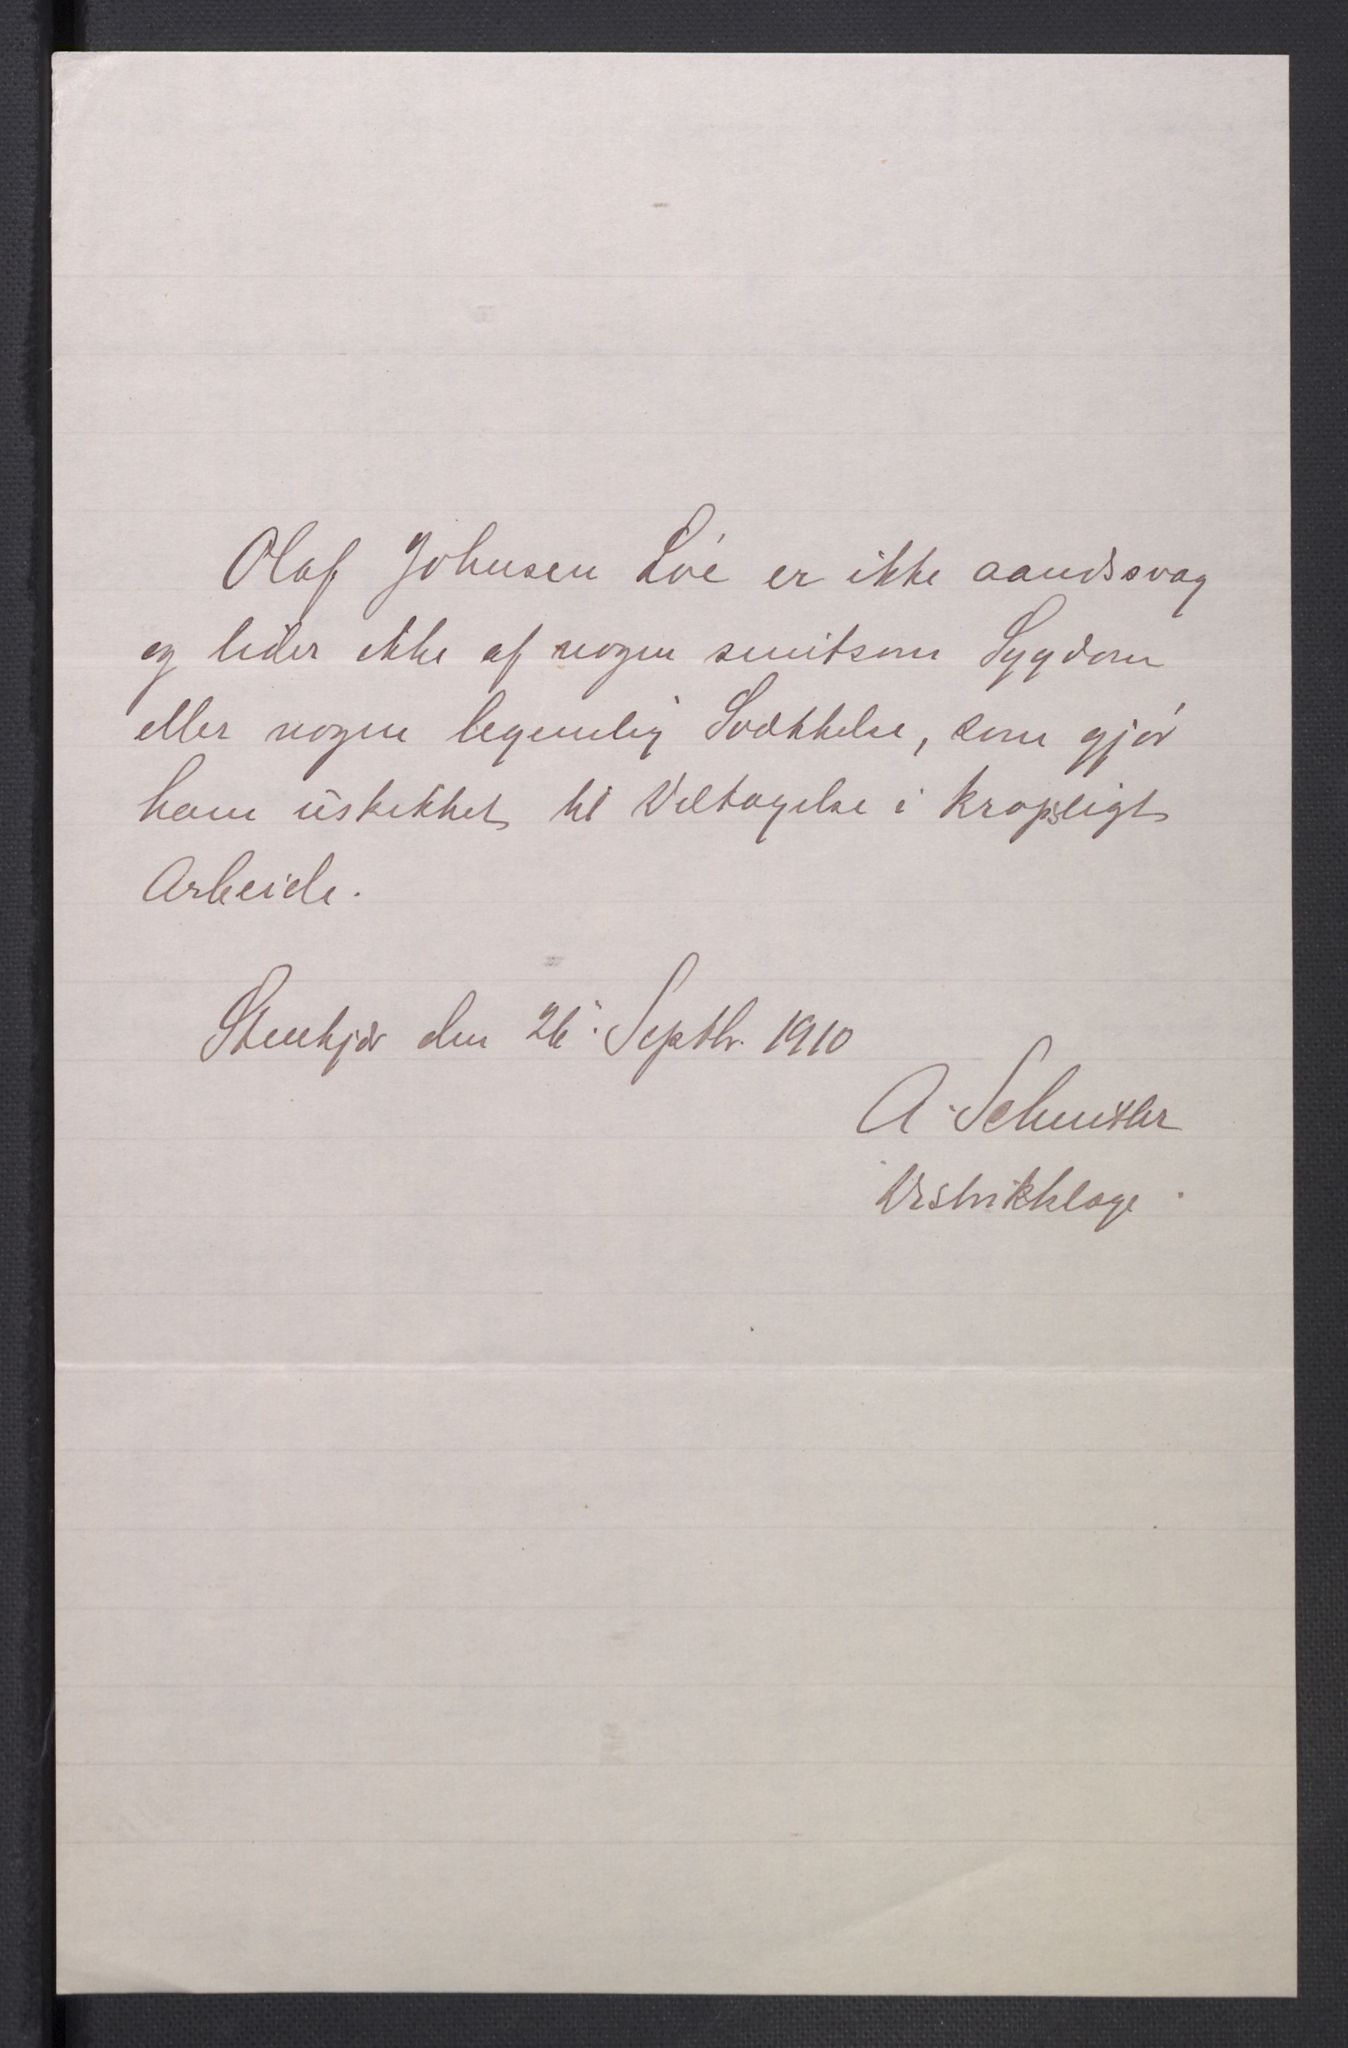 Olaf Johnsen Løe er ikke aandssvag
og lider ikke af nogen smitsom Sygdom
eller nogen legemlig Svækkelse, som gjør
ham uskikket til Deltagelse i kropsligt
Arbeide.
Stenkjær den 26. Septbr. 1910
A. Schnitler
Distriktslæge.